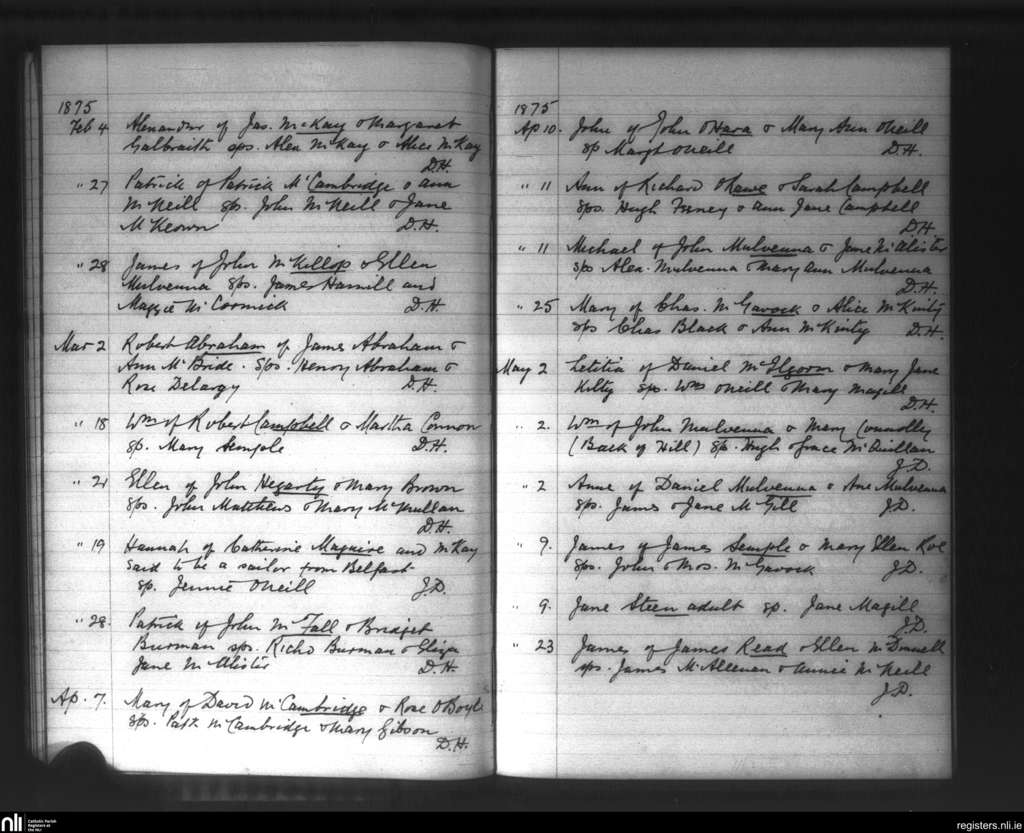 1875
Feb 4 Alexander of Jas. McKay & Margaret
Galbraith sps. Alex McKay & Alice McKay
D.H.
" 27 Patrick of Patrick McCambridge & Ann
McNeill sps. John McNeill & Jane
McKeown D.H.
" 28 James of John McKillop & Ellen
Mulvenna sps. James Hamill and
Maggie McCormick D.H.
Mar 2 Robert Abraham of James Abraham &
Ann McBride. Sps. Henry Abraham &
Rose Delargy D.H.
" 18 Wm of Robert Campbell & Martha Connon
sp. Mary Semple D.H.
" 21 Ellen of John Hegarty & Mary Brown
sps. John Matthews & Mary McMullan
D.H.
" 19 Hannah of Catherine Maguire and McKay
said to be a sailor from Belfast
sp. Jennie ONeill J.D.
" 28. Patrick of John McFall & Bridget
Burman sps. Richd Burman & Eliza
Jane McAlister D.H.
Ap. 7. Mary of David McCambridge & Rose OBoyle
sps. Patk McCambridge & Mary Gibson
D.H.
1875
Ap 10. John of John OHara & Mary Ann ONeill
sp Margt ONeill D.H.
" 11 Ann of Richard OKane & Sarah Campbell
sps. Hugh Feeney & Ann Jane Campbell
D.H.
" 11 Michael of John Mulvenna & Jane McAlister
sps Alex. Mulvenna & Mary Ann Mulvenna
D.H.
" 25 Mary of Chas. McGavock & Alice McKinty
sps Chas Black & Ann McKinty D.H.
May 2 Letitia of Daniel McElgorm & Mary Jane
Kilty sps. Wm ONeill & Mary Magill
D.H.
" 2. Wm of John Mulvenna & Mary Connolly
(Back of Hill) sps. Hugh & Grace McQuillan
J.D.
" 2 Anne of Daniel Mulvenna & Ane Mulvenna
sps. James & Jane McGill J.D.
" 9. James of James Semple & Mary Ellen Roe
sps. John & Mrs. McGavock J.D.
" 9. Jane Steen adult sp. Jane Magill
J.D.
" 23 James of James Read & Ellen McDonnell
sps. James McAleenan & Annie McNeill
J.D.
nli Catholic Parish
Registers at
the NLI
registers.nli.ie